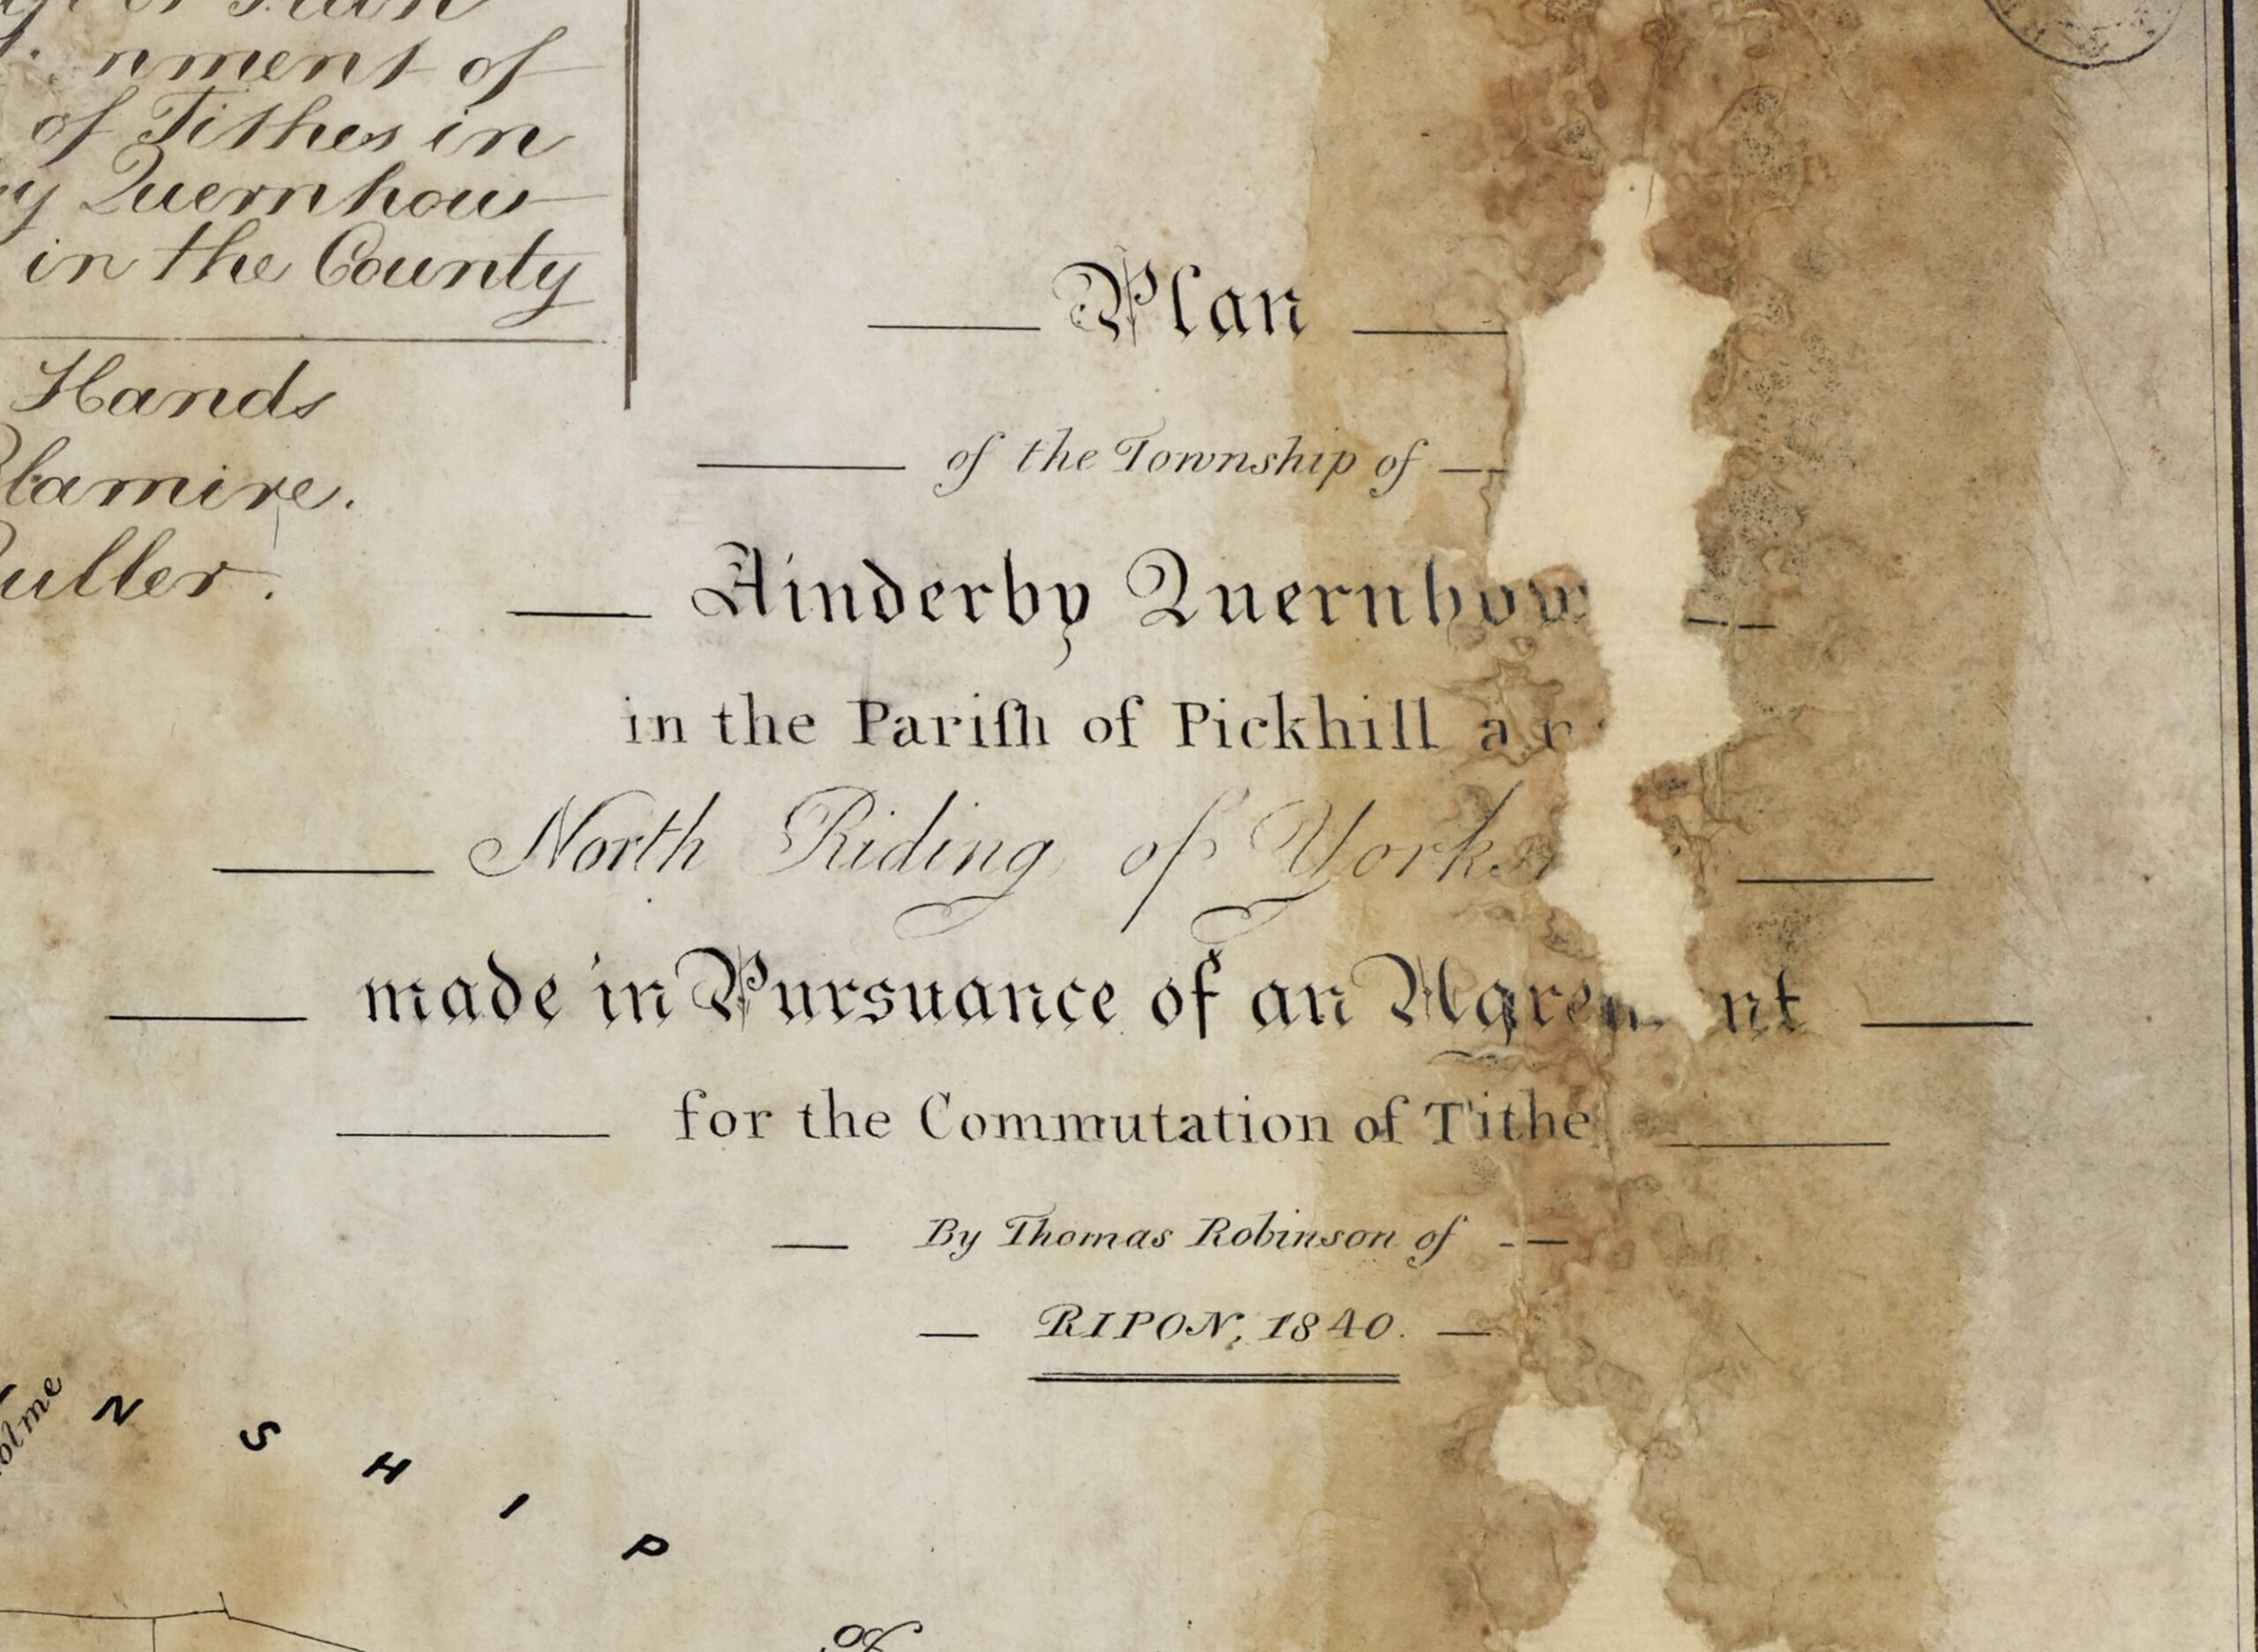 nment of
of Tithes in
Quernhow
in the County
Hands
Plan
of the Township of
Ainderby Quernhow
in the Pariſh of Pickhill
North Riding of
made in Pursuance of an
for the Commutation of Tithe
By Thomas Robinson of
RIPON, 1840.
N S H I P
of